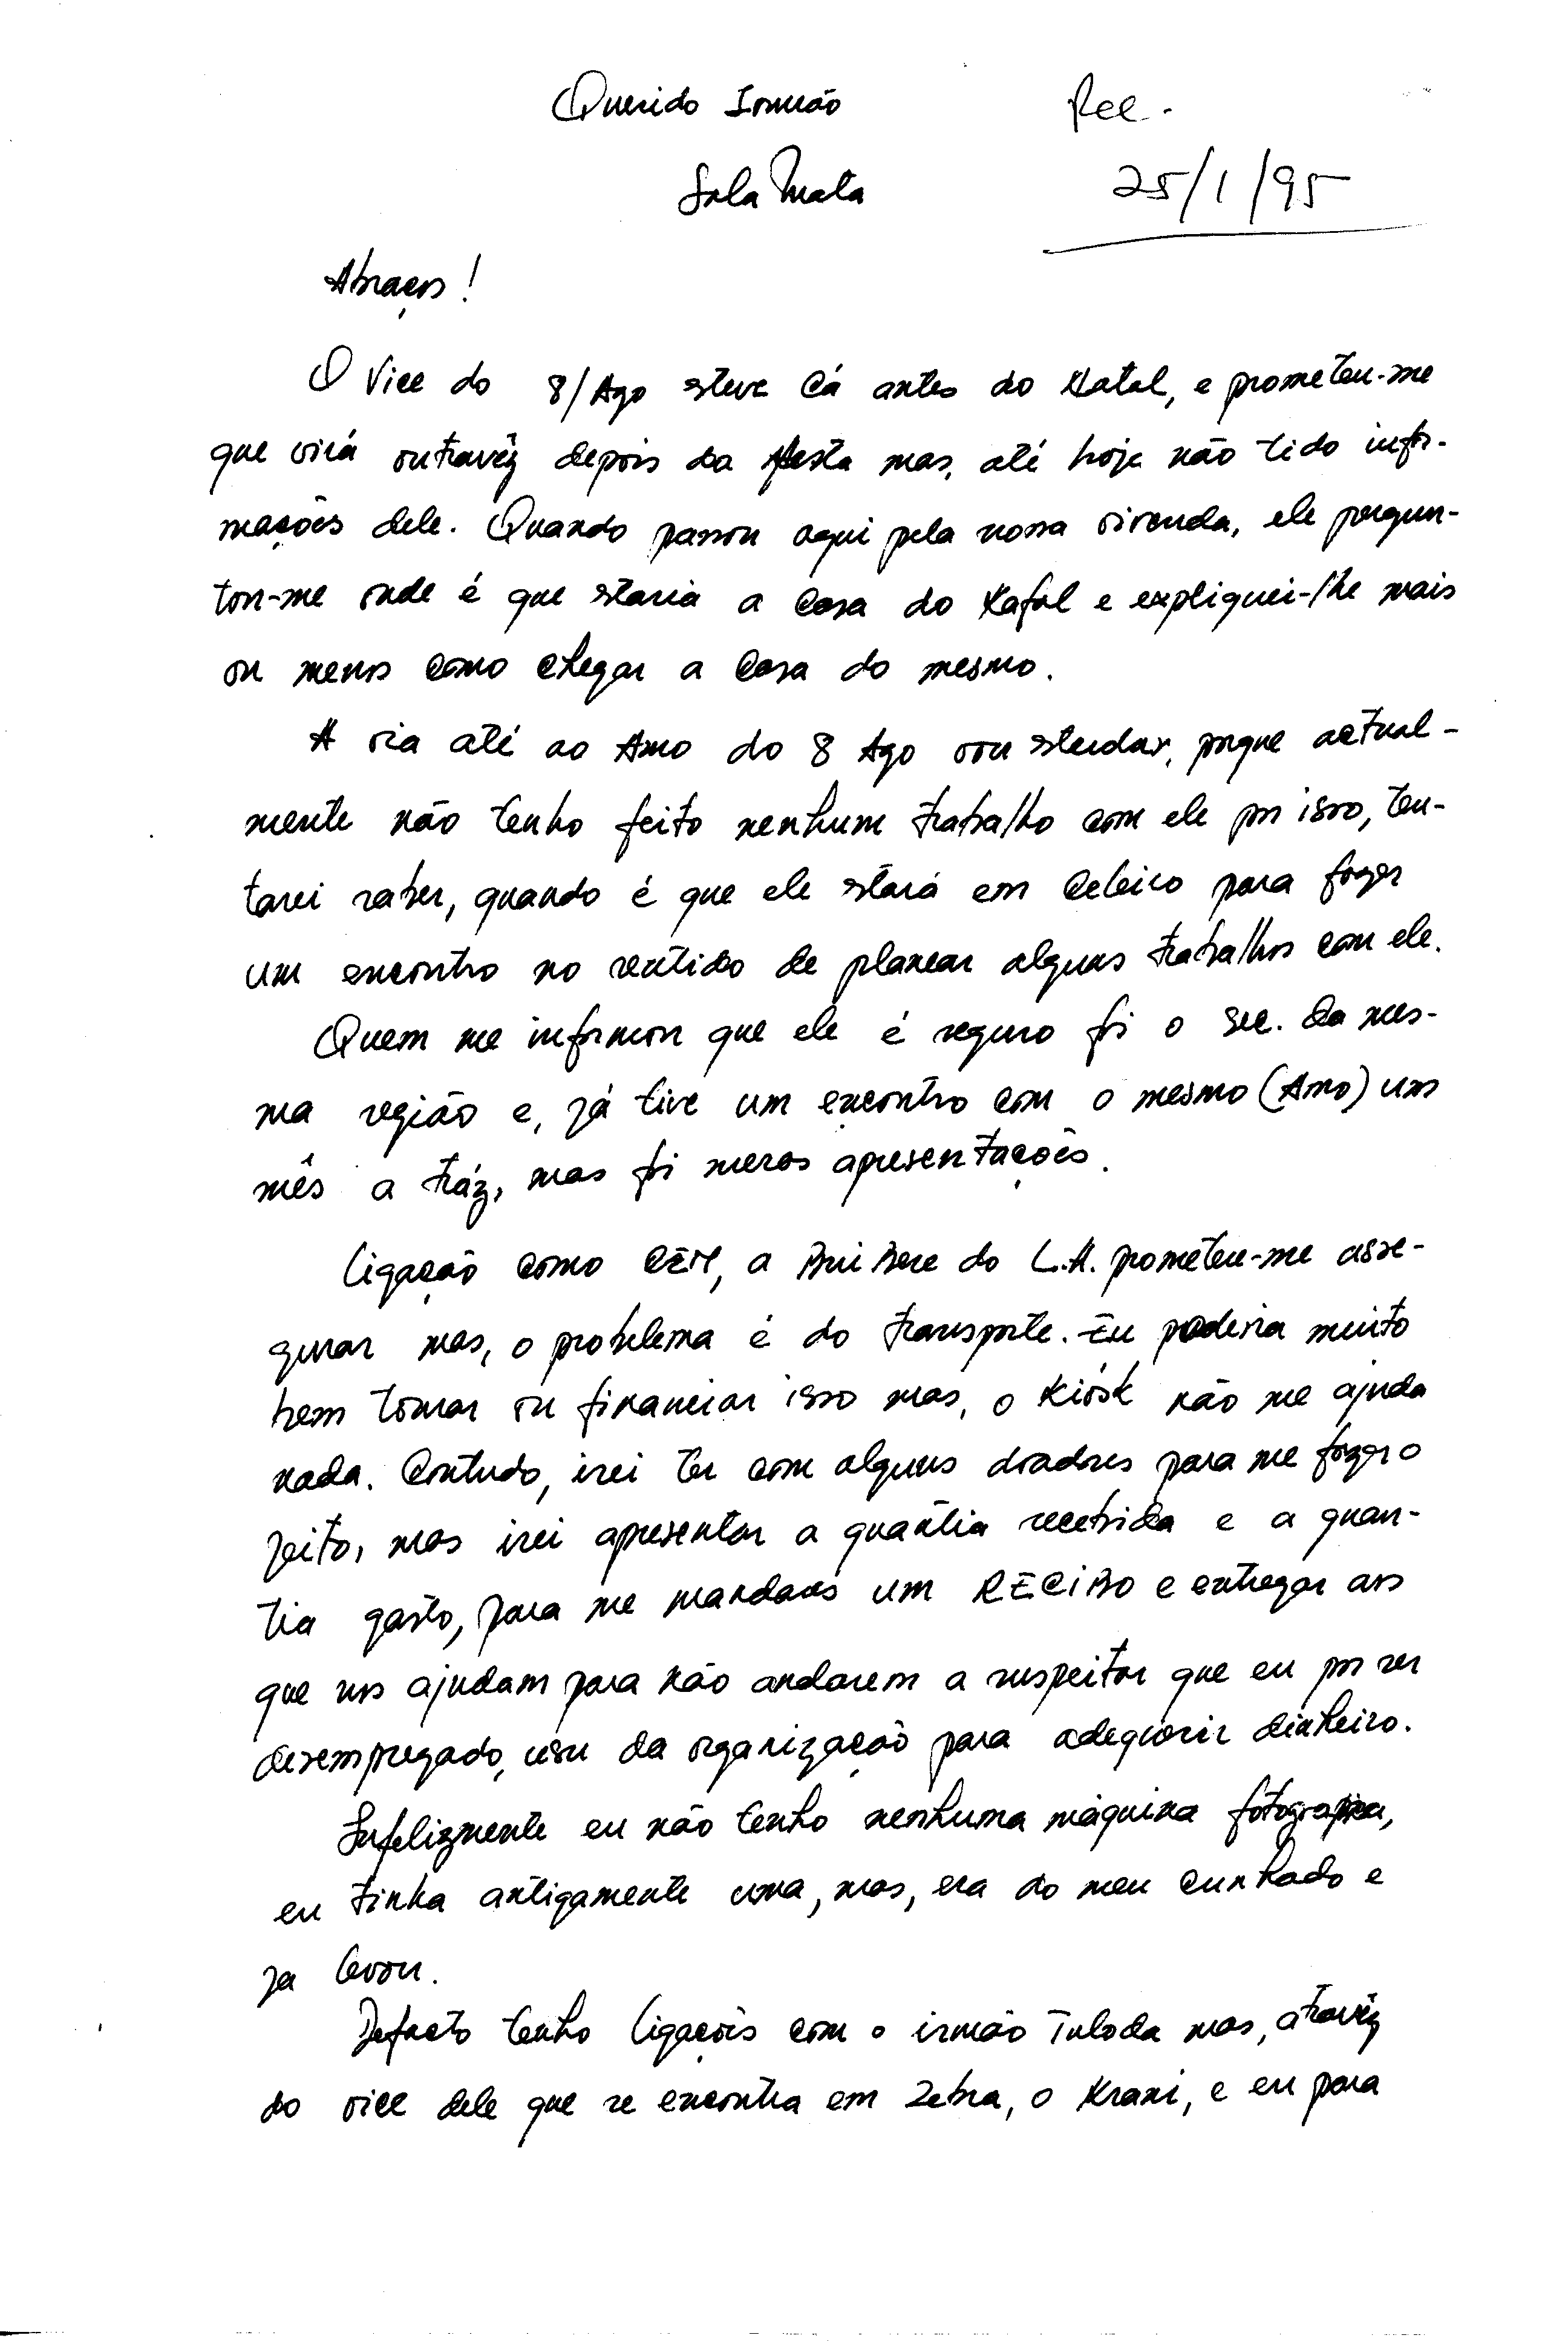 Querido Irmão
Rec.
Sala Mata
25/1/95
Abraços!
O Vice do 8/Ago steve cá antes do Natal, e prometeu-me
que virá outravêz depois da festa mas, até hoje não tido infor-
mações dele. Quando passou aqui pela nossa vivenda, ele pergun-
tou-me onde é que staria a casa do Xafol e expliquei-lhe mais
ou menos como chegar a casa do mesmo.
A via até ao Amo do 8 Ago vou studar, porque actual-
mente não tenho feito nenhum trabalho com ele por isso, ten-
tarei saber, quando é que ele stará em Celeiro para fazer
um encontro no sentido de planear alguns trabalhos com ele.
Quem me informou que ele é seguro foi o sec. da mes-
ma região e, já tive um encontro com o mesmo (Amo) um
mês a tráz, mas foi meras apresentações.
Ligação como CEM, a do L.A. prometeu-me asse-
gurar mas, o problema é do transporte. Eu poderia muito
bem tomar ou financiar isso mas, o Kiósk não me ajuda
nada. Contudo, irei ter com alguns doadores para me fazer o
jeito, mas irei apresentar a quantia recebida e a quan-
tia gasto, para me mandares um RECIBO e entregar aos
que nos ajudam para não andarem a suspeitar que eu por ser
desempregado, usu da organização para adequirir dinheiro.
Infelizmente eu não tenho nenhuma máquina fotografica,
eu tinha antigamente uma, mas, era do meu cunhado e
ja levou.
Defacto tenho ligações com o irmão Tuloda mas, atravéz
do vice dele que se encontra em Zebra, o Krani, e eu para